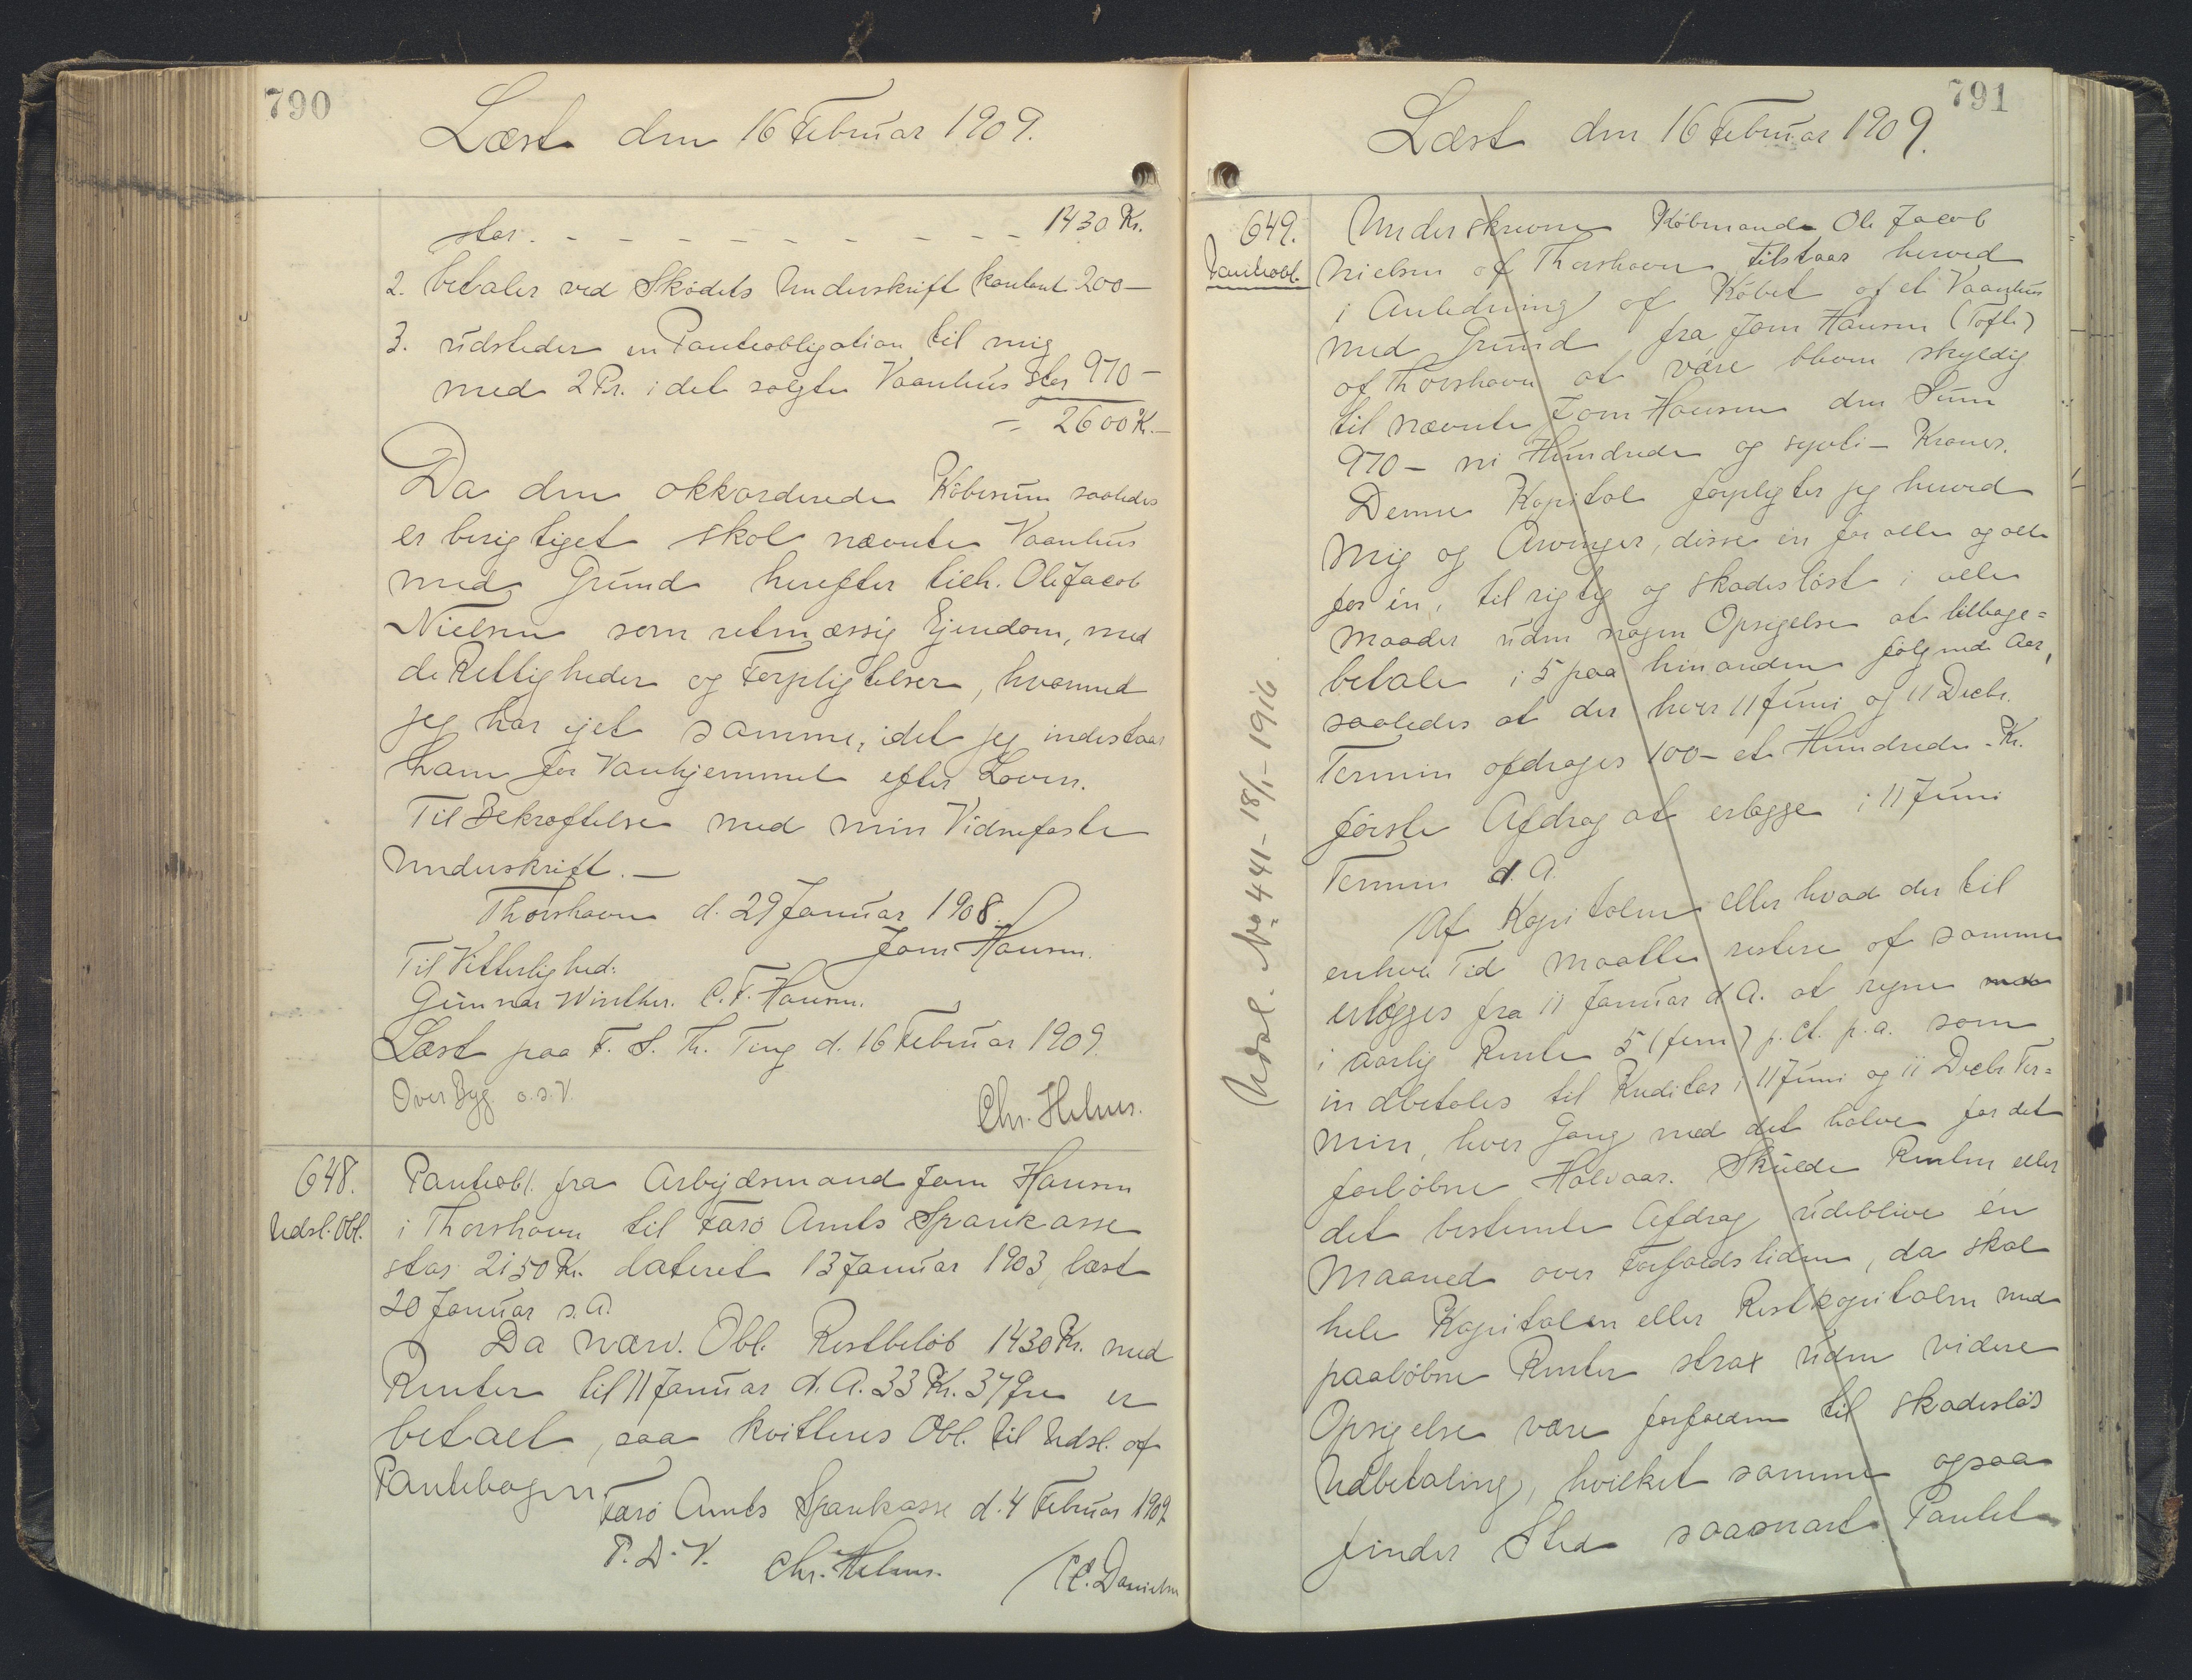 790
Læst den 16 Februar 1909.
stor - - - - - - - - - - - 1430 Kr.
2. betaler ved Skødets Underskrift kontant 200 —
3. udsteder en Panteobligation til mig
med 2 Pr. i det solgte Vaanhus stor 970 —
= 2600 K. —
Da den akkorderede Købesum saaledes
er berigtiget skal nævnte Vaanhus
med Grund herefter tilh. Ole Jacob
Nielsen som retmæssig Ejendom, med
de Rettigheder og Forpligtelser, hvormed
jeg har ejet samme, idet jeg indestaar
ham for Vanhjemmel efter Loven.
Til Bekræftelse med min Vidnefaste
Underskrift. —
Thorshavn d. 29 Januar 1908.
Jom Hansen.
Til Vitterlighed:
Gunnar Winther. C. F. Hansen.
Læst paa F. S. Th. Ting d. 16 Februar 1909.
Over Byg. o.s.v.
Chr. Helms.
648.
Udsl. Obl.
Panteobl. fra Arbejdsmand Jom Hansen
i Thorshavn til Færø Amts Sparekasse
stor 2150 Kr. dateret 13 Januar 1903, læst
20 Januar s. A.
Da nærv. Obl. Restbeløb 1430 Kr. med
Renter til 11 Januar d. A. 33 Kr. 37 Øre er
betalt, saa kvitteres Obl. til Udsl. af
Pantebogen
Færø Amts Sparekasse d. 4 Februar 1909.
P. D. V. Chr. Helms. / C. Danielsen
791
Læst den 16 Februar 1909.
649.
Panteobl.
Underskrevne Købmand Ole Jacob
Nielsen af Thorshavn tilstaar herved
i Anledning af Købet af et Vaanhus
med Grund fra Jom Hansen (Tofte)
af Thorshavn at være bleven skyldig
til nævnte Jom Hansen den Sum
970 — ni Hundrede og syvti — Kroner.
Denne Kapital forpligter jeg herved
mig og Arvinger, disse én for alle og alle
for én, til rigtig og skadesløst i alle
Maader uden nogen Opsigelse at tilbage=
betale i 5 paa hinanden følgende Aar,
saaledes at der hver 11 Juni og 11 Decbr.
Termin afdrages 100 — et Hundrede — Kr.
første Afdrag at erlægge i 11 Juni
Termin d. A.
Af Kapitalen eller hvad der til
enhver Tid maatte restere af samme
erlægges fra 11 Januar d A. at regne
i aarlig Rente 5 (fem) p. ct. p. a. som
indbetales til Kreditor i 11 Juni og 11 Decbr Ter=
min, hver Gang med det halve for det
forløbne Halvaar. Skulde Renten eller
det bestemte Afdrag udeblive én
Maaned over Forfaldstiden, da skal
hele Kapitalen eller Restkapitalen med
paaløbne Renter strax uden videre
Opsigelse være forfalden til skadesløs
Udbetaling, hvilket samme ogsaa
finder Sted saasnart Pantet
Udsl. No 441 - 18/1 - 1916.